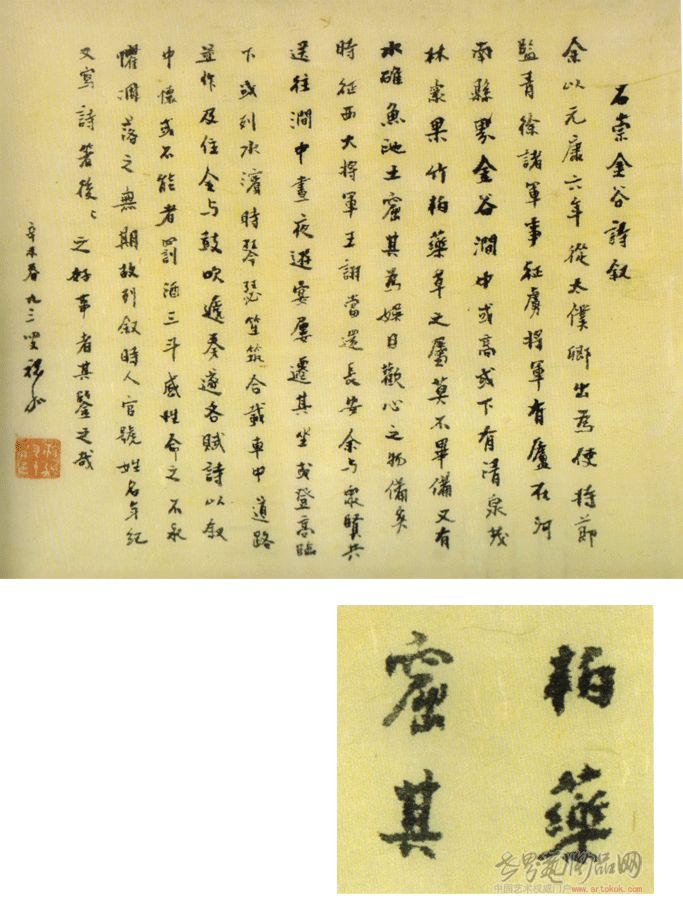 石崇金谷詩叙
余以元康六年從太僕卿出為使持節
監青徐諸軍事征虜將軍有廬在河
南縣界金谷澗中或高或下有清泉茂
林衆果竹柏藥草之屬莫不畢備又有
水碓魚池土窟其為娛目歡心之物備矣
時征西大將軍王詡當還長安余与衆賢共
送往澗中晝夜遊宴屢遷其坐或登高臨
下或列水濱時琴瑟笙筑合載車中道路
並作及住令与鼓吹遞奏遂各賦詩以叙
中懷或不能者罰酒三斗感性命之不永
懼凋落之無期故列叙時人官號姓名年紀
又寫詩箸後〻之好事者其鑒之哉
辛未春九三叟
柏藥
窟其
世界艺术品网
中国艺术权威门户 www.artokok.com